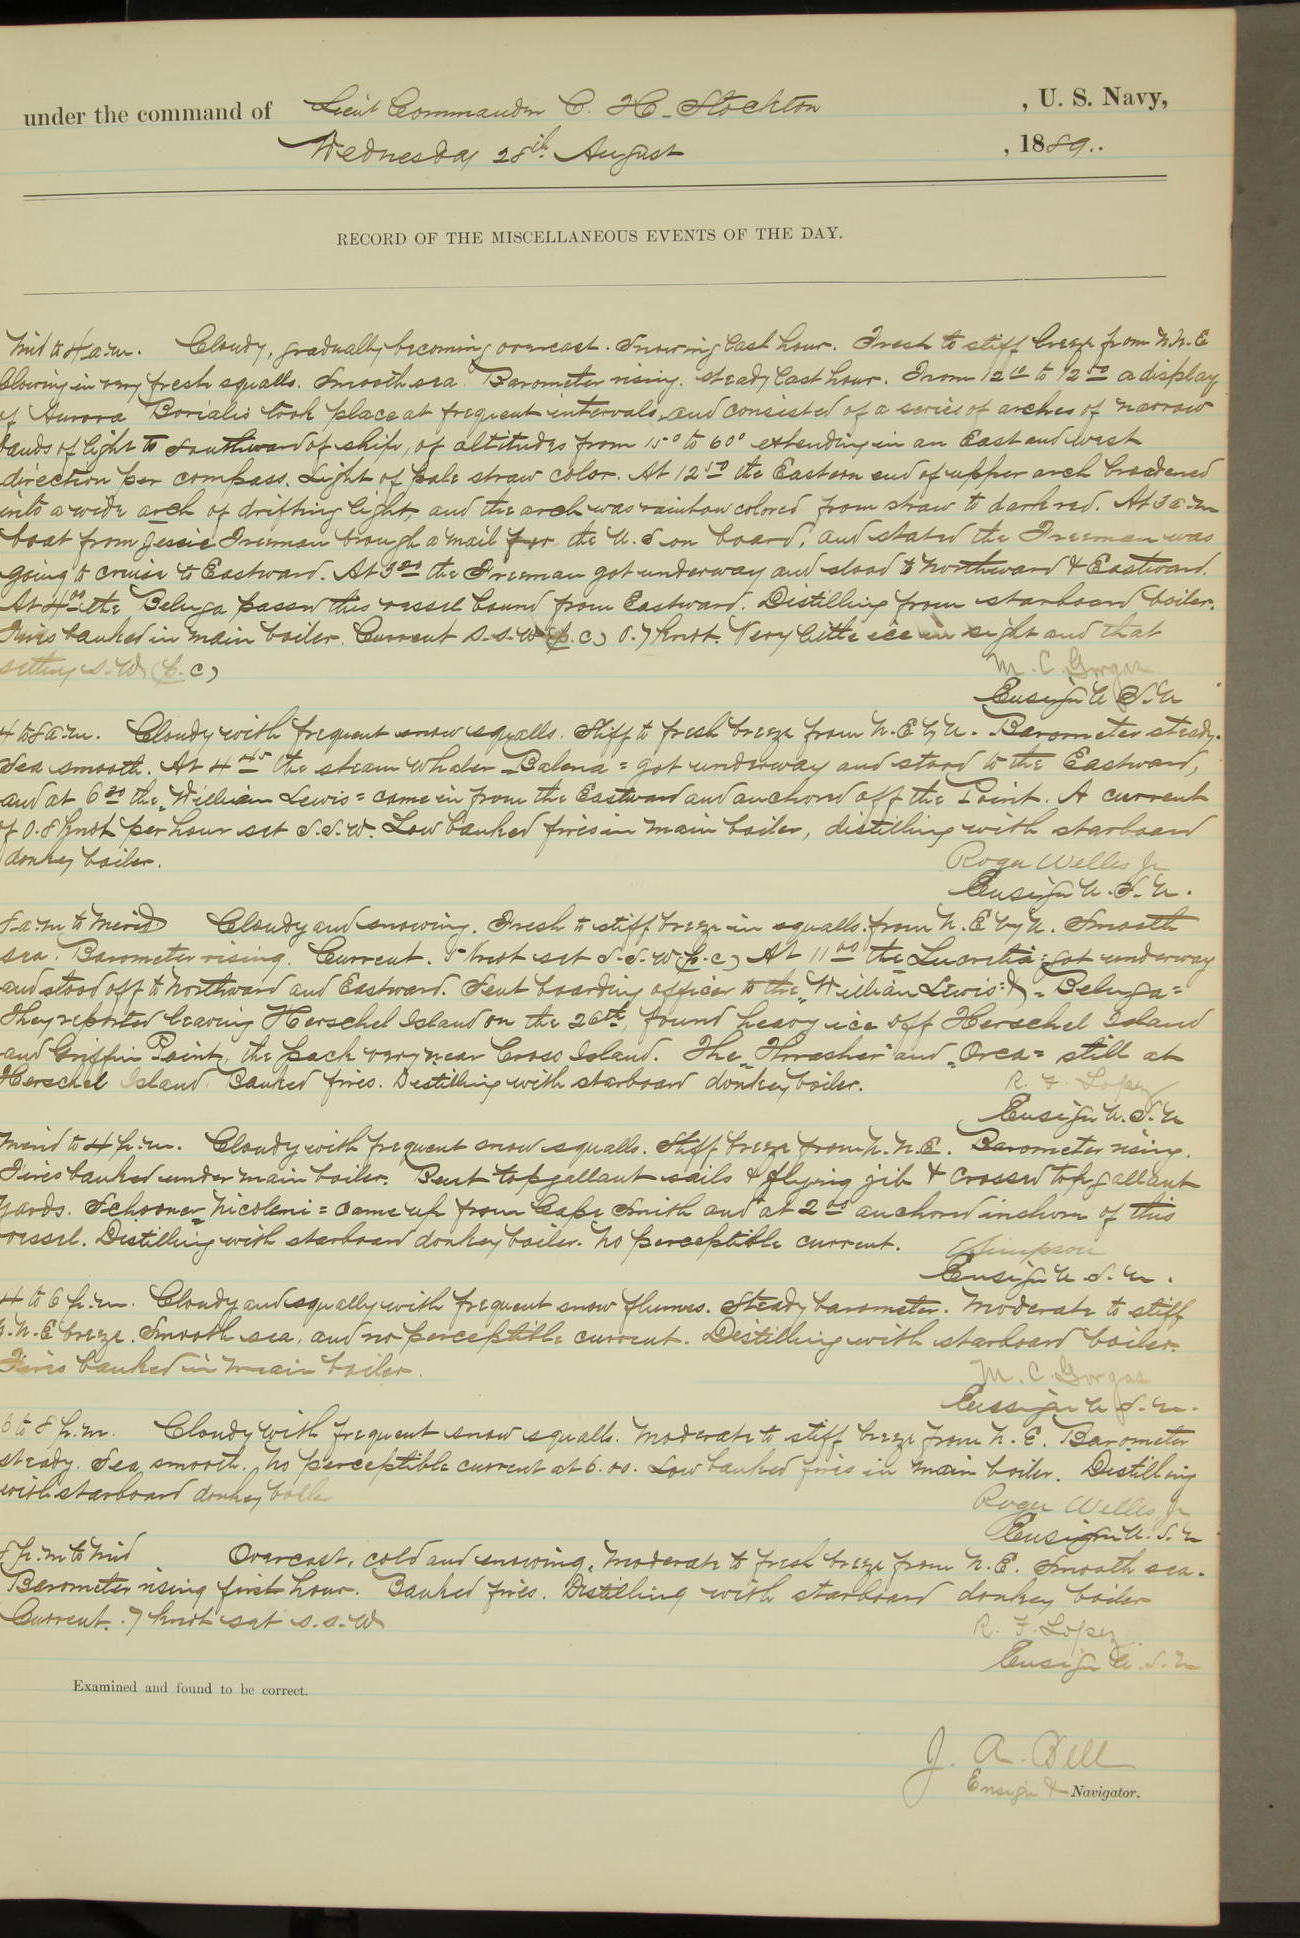 under the command of Lieut Commander C. H. Stockton, U. S. Navy,
Wednesday 28th August, 1889..
RECORD OF THE MISCELLANEOUS EVENTS OF THE DAY.
Mid to 4 a.m. Cloudy, gradually becoming overcast. Snowing last hour. Fresh to stiff breeze from N.N.E
blowing in very fresh squalls. Smooth sea. Barometer rising. steady last hour. From 12 to 12 50 a display
of Aurora Borialis took place at frequent intervals, and consisted of a series of arches of narrow
bands of light to Southward of ship, of altitudes from 15° to 60° extending in an East and west
direction per compass. Light of pale straw color. At 12 50 the Eastern end of upper arch broadened
into a wide arch of drifting light, and the arch was rainbow colored from straw to dark red. At 3 a.m
boat from Jessie Freeman brough a mail for the U.S on board, and stated the Freeman was
going to cruise to Eastward. At 3 the Freeman got underway and stood to Northward & Eastward.
At 4 00 the Beluga passed this vessel bound from Eastward. Distilling from starboard boiler.
Fires banked in main boiler. Current S.S.W (p.c) 0.7 knot. Very little ice in sight and that
setting S.W (p.c)
M. C. Gorgas
Ensign U.S.N
4 to 8 a.m. Cloudy with frequent snow squalls. Stiff to fresh breeze from N.E by N. Barometer steady.
Sea smooth. At 4 45 the steam whaler Balena = got underway and stood to the Eastward,
and at 6 the "William Lewis = came in from the Eastward and anchored off the Point. A current
of 0.8 knot per hour set S.S.W. Low banked fires in main boiler, distilling with starboard
donkey boiler.
Roger Welles Jr
Ensign U.S.N.
8 a.m to Merid Cloudy and snowing. Fresh to stiff breeze in squalls from N.E by N. Smooth
sea. Barometer rising. Current .5 knot set S.S.W (p.c) At 11 00 the Lucretia = got underway
and stood off to Northward and Eastward. Sent boarding officer to the "William Lewis = & "Beluga =
They reported leaving Herschel Island on the 26th, found heavy ice off Herschel Island
and Griffin Point, the pack very near Cross Island. The "Thrasher" and "Orca = still at
Herschel Island. Banked fires. Distilling with starboard donkey boiler.
R. F. Lopez
Ensign U.S.N
Merid to 4 p.m. Cloudy with frequent snow squalls. Stiff breeze from N.N.E. Barometer rising.
Fires banked under main boiler. Bent topgallant sails & flying jib & crossed topgallant
yards. Schooner "Nicoleni = came up from Cape Smith and at 2 anchored inshore of this
vessel. Distilling with starboard donkey boiler. No perceptible current.
Simpson
Ensign U.S.N.
4 to 6 p.m. Cloudy and squally with frequent snow flurries. Steady barometer. Moderate to stiff
N.N.E breeze. Smooth sea, and no perceptible current. Distilling with starboard boiler.
Fires banked in main boiler.
M. C. Gorgas
Ensign U.S.N.
6 to 8 p.m. Cloudy with frequent snow squalls. Moderate to stiff breeze from N.E. Barometer
steady. Sea smooth. No perceptible current at 6.00. Low banked fires in main boiler. Distilling
with starboard donkey boiler
Roger Welles, Jr
Ensign U.S.N
8 p.m to Mid Overcast, cold and snowing. Moderate to fresh breeze from N.E. Smooth sea.
Barometer rising first hour. Banked fires. Distilling with starboard donkey boiler
Current .7 knot set S.S.W
R. F. Lopez
Ensign U.S.N
Examined and found to be correct.
J. A. Bell
Ensign & Navigator.